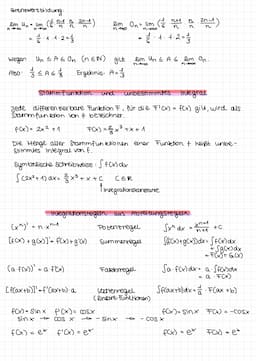 Grenzwertbildung:
lim Un = lim (1/6 · n-1/n · n/n · 2n-1/n) lim On = lim (1/6 · n+1/n · n/n · 2n+1/n)
= 1/6 · 1 · 1 · 2 = 1/3 = 1/6 · 1 · 1 · 2 = 1/3
wegen Un ≤ A ≤ On (n∈N) gilt lim Un ≤ A ≤ lim On.
Also: 1/3 ≤ A ≤ 1/3 Ergebnis: A = 1/3
Stammfunktion und unbestimmtes Integral
Jede differenzierbare Funktion F, für die F'(x) = f(x) gilt, wird als
Stammfunktion von f bezeichnet.
f(x) = 2x² + 1 F(x) = 2/3 x³ + x + 1
Die Menge aller Stammfunktionen einer Funktion f heißt unbe-
stimmtes Integral von f.
Symbolische Schreibweise: ∫ f(x) dx
∫ (2x² + 1) dx = 2/3 x³ + x + C C∈R
Integrationskonstante
Integrationsregeln aus Ableitungsregeln
(xⁿ)' = n · xⁿ⁻¹ Potenzregel ∫ xⁿ dx = xⁿ⁺¹/n+1 + C
[f(x) + g(x)]' = f'(x) + g'(x) Summenregel ∫ (f(x) + g(x)) dx = ∫ f(x) dx
+ ∫ g(x) dx
= F(x) + G(x)
(a f(x))' = a f'(x) Faktorregel ∫ a · f(x) dx = a · ∫ f(x) dx
= a · F(x)
[f(ax+b)]' = f'(ax+b) · a Kettenregel ∫ f(ax+b) dx = 1/a · F(ax+b)
f(x) = sin x f'(x) = cos x f(x) = sin x F(x) = -cos x
sin x → cos x → -sin x → -cos x
f(x) = eˣ f'(x) = eˣ f(x) = eˣ F(x) = eˣ